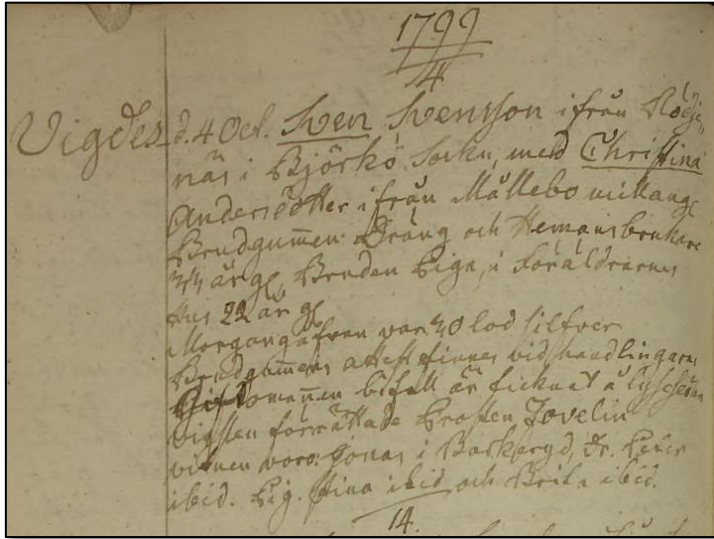 1799
4
Vigdes d. 4 Oct. Sven Svensson ifrån Rödje,,
näs i Björkö Sockn, med Christina
Andersdotter ifrån Mållebo
Brudgummen Dräng och Hemansbrukare
år gl, Bruden Piga, i Föräldrarnes
Hus 22 år gl
Morgongåfvan var 20 lod silfver
Brudgummens attest finnes vid handlingarna
Giftomannen bifall är
vigslen förrättade Prosten Jovelin
vitnen voro: Jonas i Barkeryd, dr. Peter
ibid. Pig. Stina ibid och Brita ibid.
14.